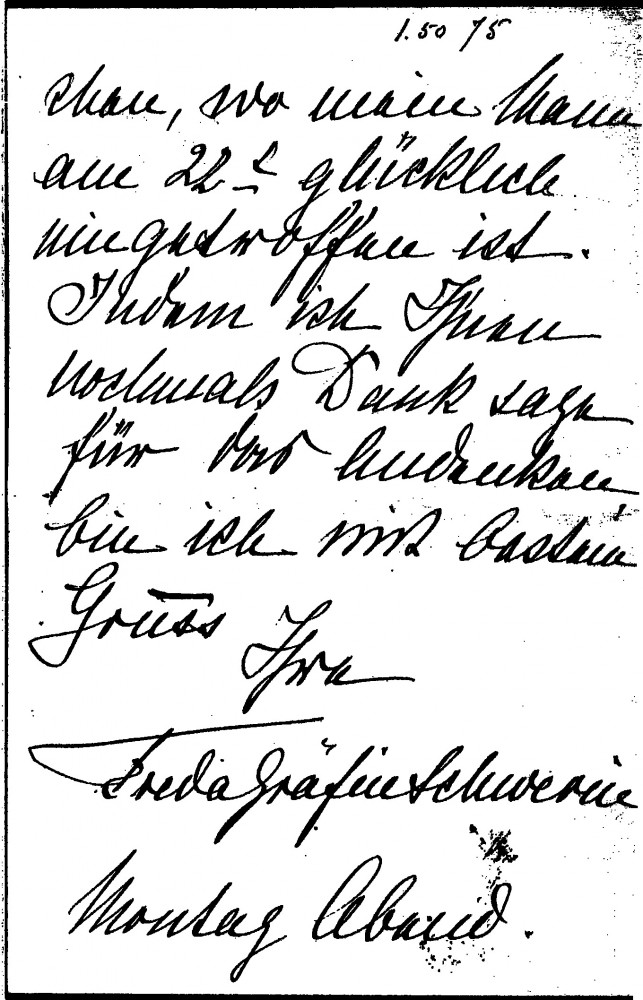 1.50 75
chen, wo mein Mann
am 22 t glücklich
eingetroffen ist.
Indem ich Ihnen
nochmals Dank sage
für das Andenken
bin ich mit bestem
Gruss
Ihre
Freda Gräfin Schwerin
Montag Abend.